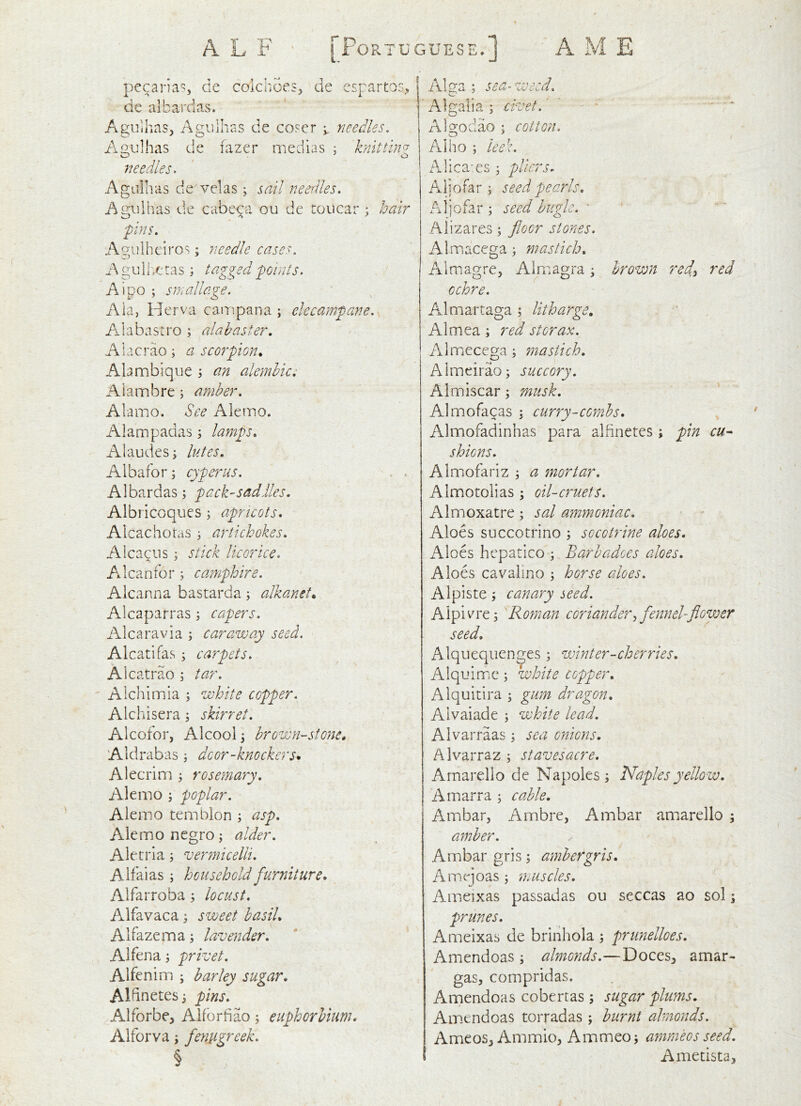 ALF [PORTUGUESE.] AME
peçarias, de colchões, de espartos,
de albardas.
Agulhas, Agulhas de coser ; needles.
Agulhas de fazer medias ; knitting
needles.
Agulhas de velas ; sail needles.
Agulhas de cabeça ou de toucar ; hair
pins.
Agulheiros ; needle cases.
Agulhetas ; tagged points.
Aipo ; smallage.
Ala, Herva campana ; elecampane.
Alabastro ; alabaster.
Alacrão ; a scorpion.
Alambique ; an alembic.
Alambre ; amber.
Alamo. See Alemo.
Alampadas ; lamps.
Alaudes ; lutes.
Albafor ; cyperus.
Albardas ; pack-saddles.
Albricoques ; apricots.
Alcachofas ; artichokes.
Alcaçus ; stick licorice.
Alcanfor ; camphire.
Alcanna bastarda ; alkanet.
Alcaparras ; capers.
Alcaravia ; caraway seed.
Alcatifas ; carpets.
Alcatrão ; tar.
Alchimia ; white copper.
Alchisera ; skirret.
Alcofor, Alcool ; brown-stone.
Aldrabas ; door-knockers.
Alecrim ; rosemary.
Alemo ; poplar.
Alemo temblon ; asp.
Alemo negro ; alder.
Aletria ; vermicelli.
Alfaias ; household furniture.
Alfarroba ; locust.
Alfavaca ; sweet basil.
Alfazema ; lavender.
Alfena ; privet.
Alfenim ; barley sugar.
Alfinetes ; pins.
Alforbe, Alforfião ; euphorbium.
Alforva ; fenugreek.
§
Alga ; sea-weed.
Algalia ; civet.
Algodão ; cotton.
Alho ; leek.
Alicates ; pliers.
Aljofar ; seed pearls.
Aljofar ; seed bugle.
Alizares ; floor stones.
Almacega ; mastich.
Almagre, Almagra ; brown red, red
ochre.
Almartaga ; litharge.
Almea ; red storax.
Almecega ; mastich.
Almeirão ; succory.
Almiscar ; musk.
Almofaças ; curry-combs.
Almofadinhas para alfinetes ; pin cu-
shions.
Almofariz ; a mortar.
Almotolias ; oil-cruets.
Almoxatre ; sal ammoniac.
Aloés succotrino ; socotrine aloes.
Aloés hepatico ; Barbadoes aloes.
Aloés cavalino ; horse aloes.
Alpiste ; canary seed.
Alpivre ; Roman coriander, fennel-flower
seed.
Alquequenges ; winter-cherries.
Alquime ; white copper.
Alquitira ; gum dragon.
Alvaiade ; white lead.
Alvarrãas ; sea onions.
Alvarraz ; stavesacre.
Amarello de Napoles ; Naples yellow.
Amarra ; cable.
Ambar, Ambre, Ambar amarello ;
amber.
Ambar gris ; ambergris.
Amejoas ; muscles.
Ameixas passadas ou seccas ao sol ;
prunes.
Ameixas de brinhola ; prunelloes.
Amendoas ; almonds.—Doces, amar-
gas, compridas.
Amendoas cobertas ; sugar plums.
Amendoas torradas ; burnt almonds.
Ameos, Ammio, Ammeo ; ammeos seed.
Ametista,